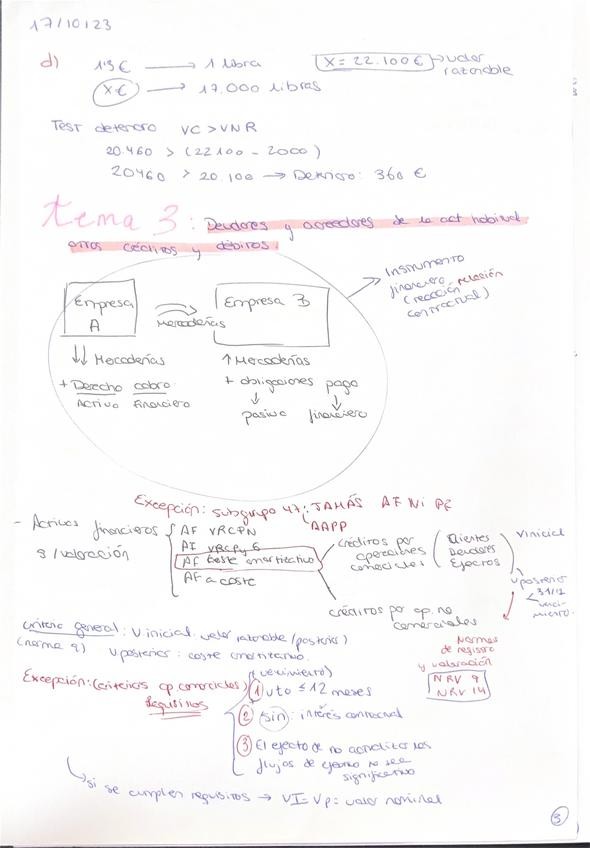 17/10/23
d) 1'3 € → 1 libra
X = 22.100 € → valor razonable
X € → 17.000 libras
Test deterioro VC > VNR
20.460 > (22100 - 2000)
20460 > 20.100 → Deterioro: 360 €
tema 3: Deudores y acreedores de la act habitual
otros créditos y débitos.
Instrumento
financiero
(reacción relación
contractual)
Empresa A
Mercaderías
Empresa B
↓↓ Mercaderías
+ Derecho cobro
Activo financiero
↑ Mercaderías
+ obligaciones pago
pasivo financiero
Excepción: subgrupo 47: JAMÁS AF Ni PF
AAPP
- Activos financieros
s/ valoración
AF VRCPN
AF VRCPyG
AF coste amortizativo
AF a coste
créditos por
operaciones
comerciales
Clientes
Deudores
Efectos
V inicial
V posterior
31/12
venci-
miento.
créditos por op. no
comerciales
Criterio general: V. inicial: valor razonable (posterior)
(norma 9) V posterior: coste amortizativo.
Normas
de registro
y valoración
NRV 9
NRV 14
Excepción: (criterios op. comerciales)
Requisitos
(vencimiento)
1 vto ≤ 12 meses
2 sin: interés contractual
3 El efecto de no actualizar los
flujos de efectivo no sea
significativo
si se cumplen requisitos → VI = Vp = valor nominal
3